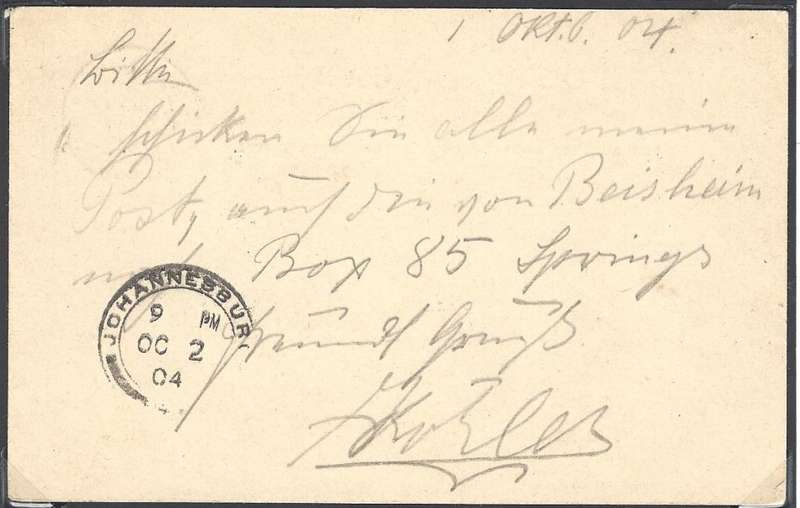 1 Okt.b. 04.
Bitte
schicken Sie alle meine
Post, auch die von Beisheim
nach Box 85 Springs
freundl Gruß
Kohler
JOHANNESBUR
9 PM
OC 2
04